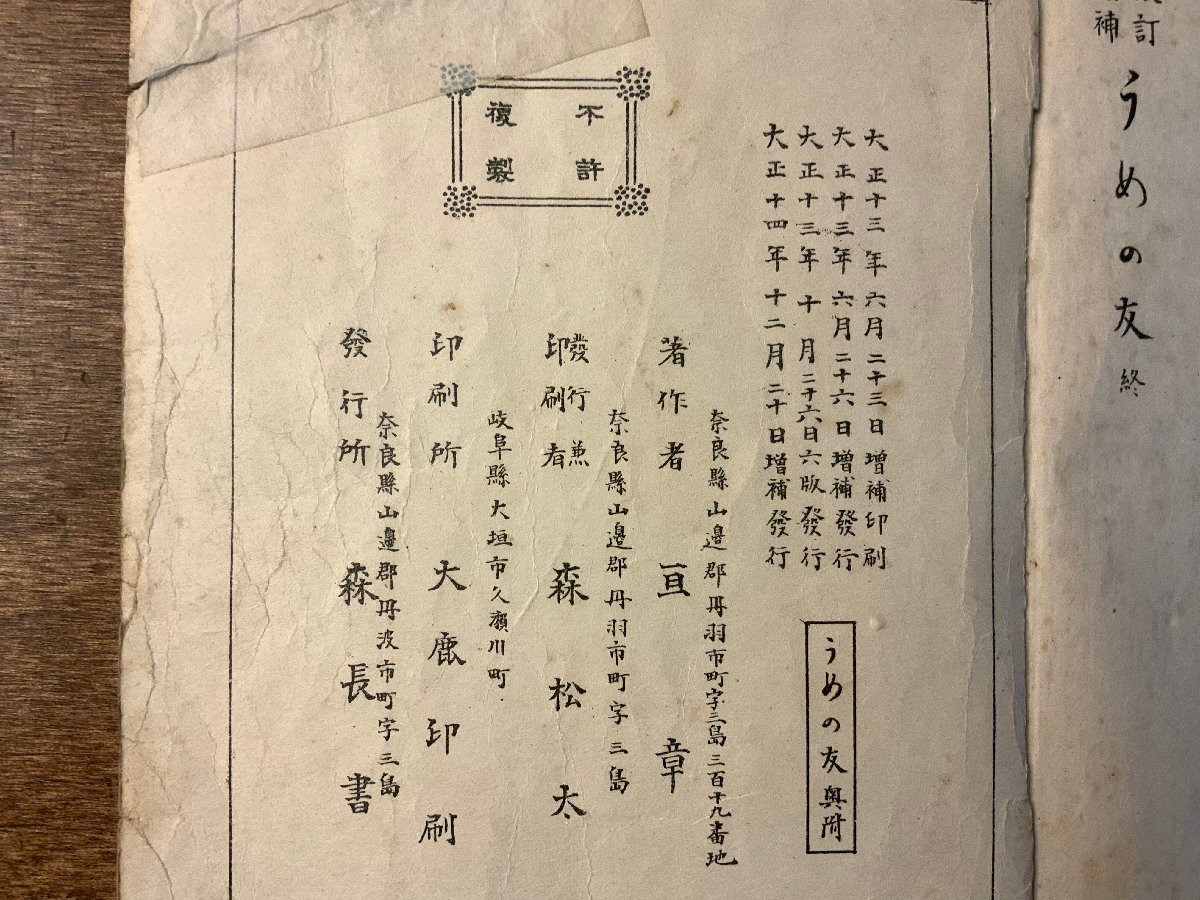 訂
補
うめの友 終
大正十三年六月二十三日增補印刷
大正十三年六月二十六日增補發行
大正十三年十月二十六日六版發行
大正十四年十二月二十日增補發行
うめの友 奧附
不許
複製
奈良縣山邊郡丹羽市町字三島三百十九番地
著作者 亘章
奈良縣山邊郡丹羽市町字三島
發行兼
印刷者 森松太
岐阜縣大垣市久瀨川町
印刷所 大鹿印刷
奈良縣山邊郡丹波市町字三島
發行所 森長書